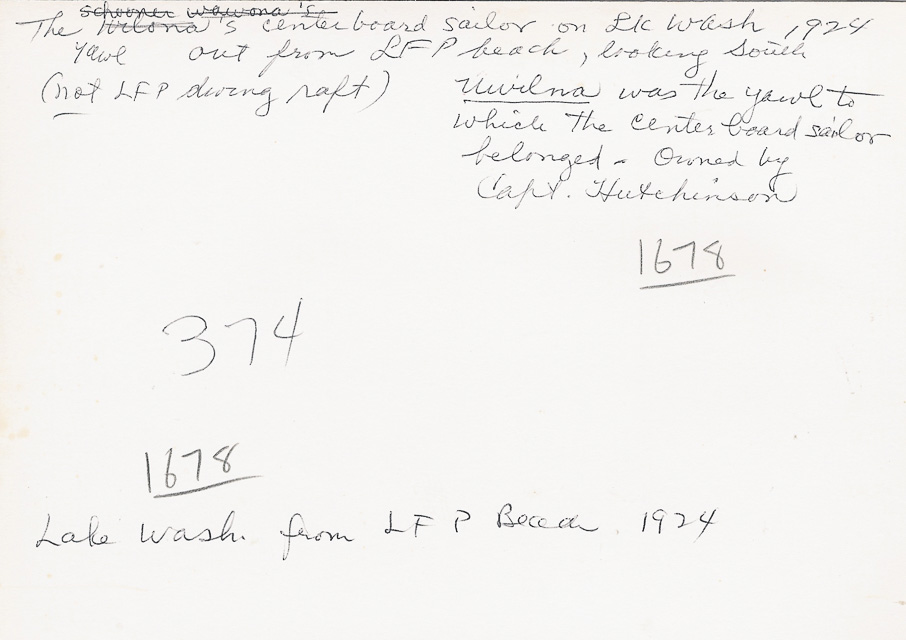 schooner wawona's
The Wilona's centerboard sailor on Lk Wash, 1924
yawl out from LFP beach, looking South
(not LFP diving raft)
Uwilna was the yawl to
which the centerboard sailor
belonged - Owned by
Capt. Hutchinson
1678
374
1678
Lake Wash. from LFP Beach 1924